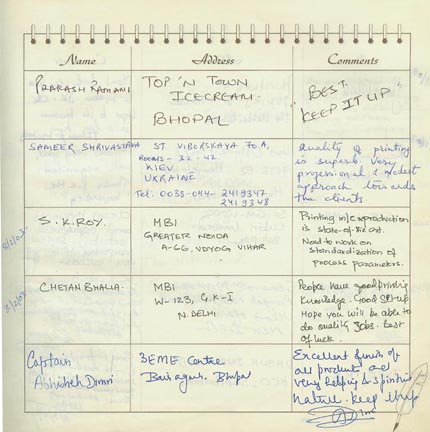 Name Address Comments
PRAKASH RATHANI
TOP 'N TOWN
ICECREAM
BHOPAL
"BEST.
KEEP IT UP"
SAMEER SHRIVASTAVA
ST. VIBORSKAYA 70 A,
ROOMS - 32 - 42
KIEV
UKRAINE
Tel: 0038-044- 2419347
2419348
Quality of printing
is superb. Very
professional & modest
approach towards
the clients.
5/2/02
S. K. ROY.
MBI
GREATER NOIDA
A-66, UDYOG VIHAR
Printing in/e production
is state-of-the art.
Need to work on
standardization of
process parameters.
CHETAN BHALLA.
MBI
W-123, G.K-I
N. DELHI
People have good printing
knowledge. Good set-up
Hope you will be able to
do quality jobs. best
of luck.
Captain
Abhishek
3EME Centre
Bairagarh. Bhopal
Excellent finish of
all products and
very helping &
nature. keep it up